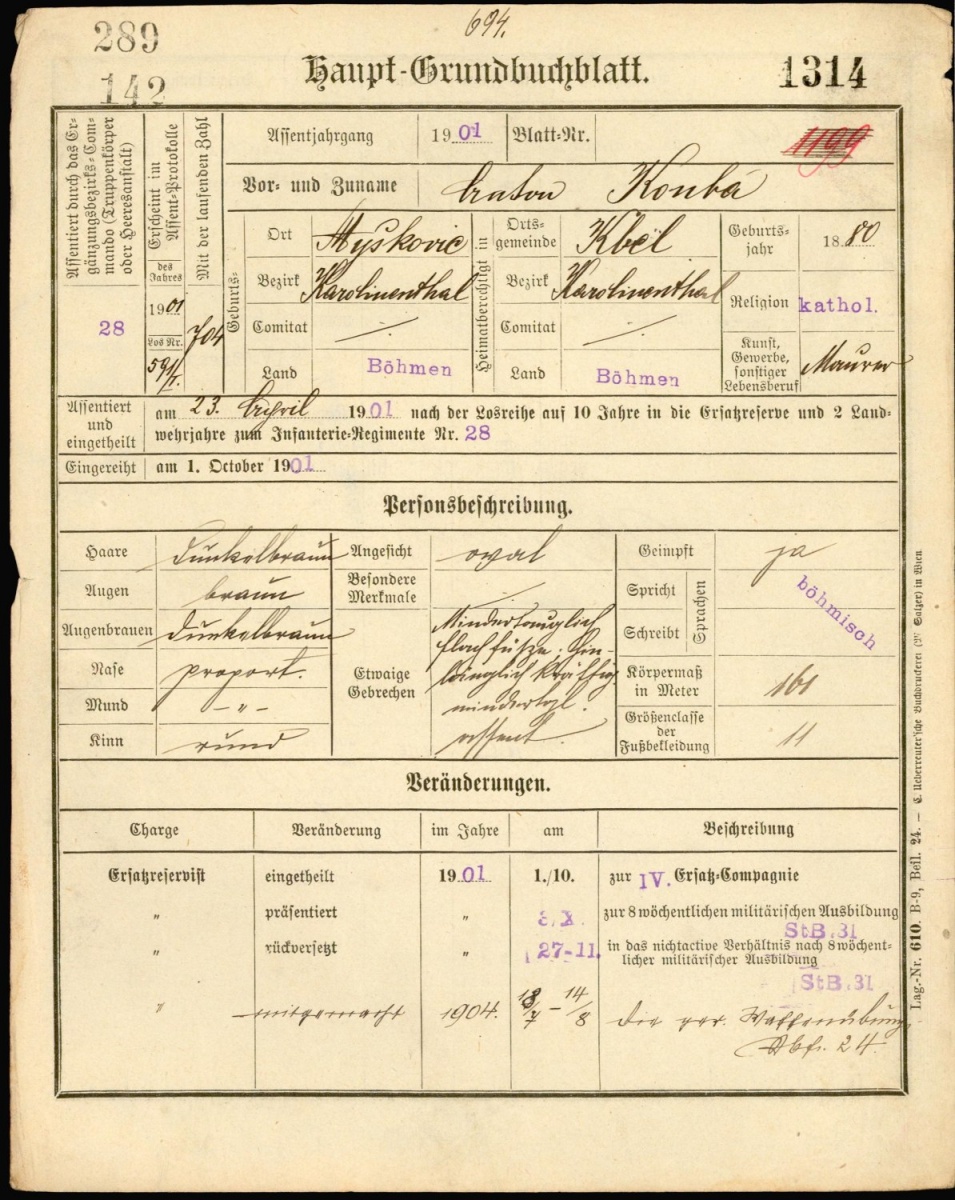 694.
289
142
Haupt-Grundbuchblatt.
1314
Assentiert durch das Er-
gänzungsbezirks-Com-
mando (Truppenkörper
oder Heeresanstalt)
28
Erscheint im
Assent-Protokolle
des
Jahres
1901
Los Nr.
Mit der laufenden Zahl
704
Assentjahrgang 1901 Blatt-Nr. 1199
Vor- und Zuname Anton Koubá
Geburts-
Ort Myskovic
Bezirk Karolinenthal
Comitat ./.
Land Böhmen
Heimatberechtigt in
Orts-
gemeinde Kbel
Bezirk Karolinenthal
Comitat ./.
Land Böhmen
Geburts-
jahr 1880
Religion kathol.
Kunst,
Gewerbe,
sonstiger
Lebensberuf Maurer
Assentiert
und
eingetheilt
am 23. April 1901 nach der Losreihe auf 10 Jahre in die Ersatzreserve und 2 Land-
wehrjahre zum Infanterie-Regimente Nr. 28
Eingereiht am 1. October 1901
Personsbeschreibung.
Haare Dunkelbraun
Augen braun
Augenbrauen Dunkelbraun
Nase proport.
Mund - " -
Kinn rund
Angesicht oval
Besondere
Merkmale
Etwaige
Gebrechen
Mindertauglich
flachfüsze; hin-
länglich kräftig
mindertgl.
assent.
Geimpft ja
Spricht
Schreibt
Sprachen
böhmisch
Körpermaß
in Meter 161
Größenclasse
der
Fußbekleidung 11
Veränderungen.
Charge Veränderung im Jahre am Beschreibung
Ersatzreservist eingetheilt 1901 1./10. zur IV. Ersatz-Compagnie
" präsentiert " 3/X. zur 8 wöchentlichen militärischen Ausbildung
StB.31
" rückversetzt " 27-11. in das nichtactive Verhältnis nach 8 wöchent-
licher militärischer Ausbildung
StB.31
" mitgemacht 1904. 18/7 - 14/8 die per. Waffenübung
Abfr. 24.
Lag.-Nr. 610. B-9, Beil. 24. — C. Ueberreuter'sche Buchdruckerei (M. Salzer) in Wien